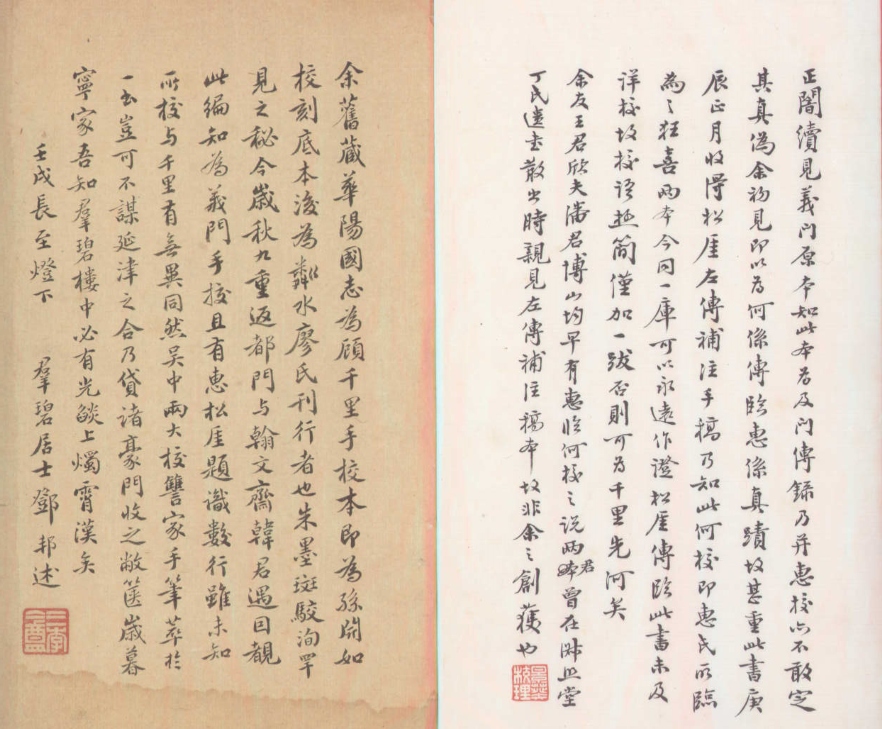 正闇續見義門原本知此本為及門傳錄乃并惠校亦不敢定
其真偽余初見即以為何係傳臨惠係真蹟故甚重此書庚
辰正月收得松厓左傳補注手稿乃知此何校即惠氏所臨
為之狂喜兩本今同一庫可以永遠作證松厓傳臨此書未及
詳校故校語極簡僅加一跋否則可為千里先河矣
余友王君欣夫潘君博山均早有惠臨何校之說兩君曾在淑照堂
丁氏遺書散出時親見左傳補注稿本故非余之創獲也
景葵校理
余舊藏華陽國志為顧千里手校本即為孫淵如
校刻底本後為鄰水廖氏刊行者也朱墨斑駁洵罕
見之秘今歲秋九重返都門與翰文齋韓君遇目覩
此編知為義門手校且有惠松厓題識數行雖未知
所校與千里有無異同然吳中兩大校讎家手筆萃於
一書豈可不謀延津之合乃貸諸豪門收之敝篋歲暮
寧家吾知羣碧樓中必有光燄上燭霄漢矣
壬戌長至燈下 羣碧居士鄧邦述
三李盦